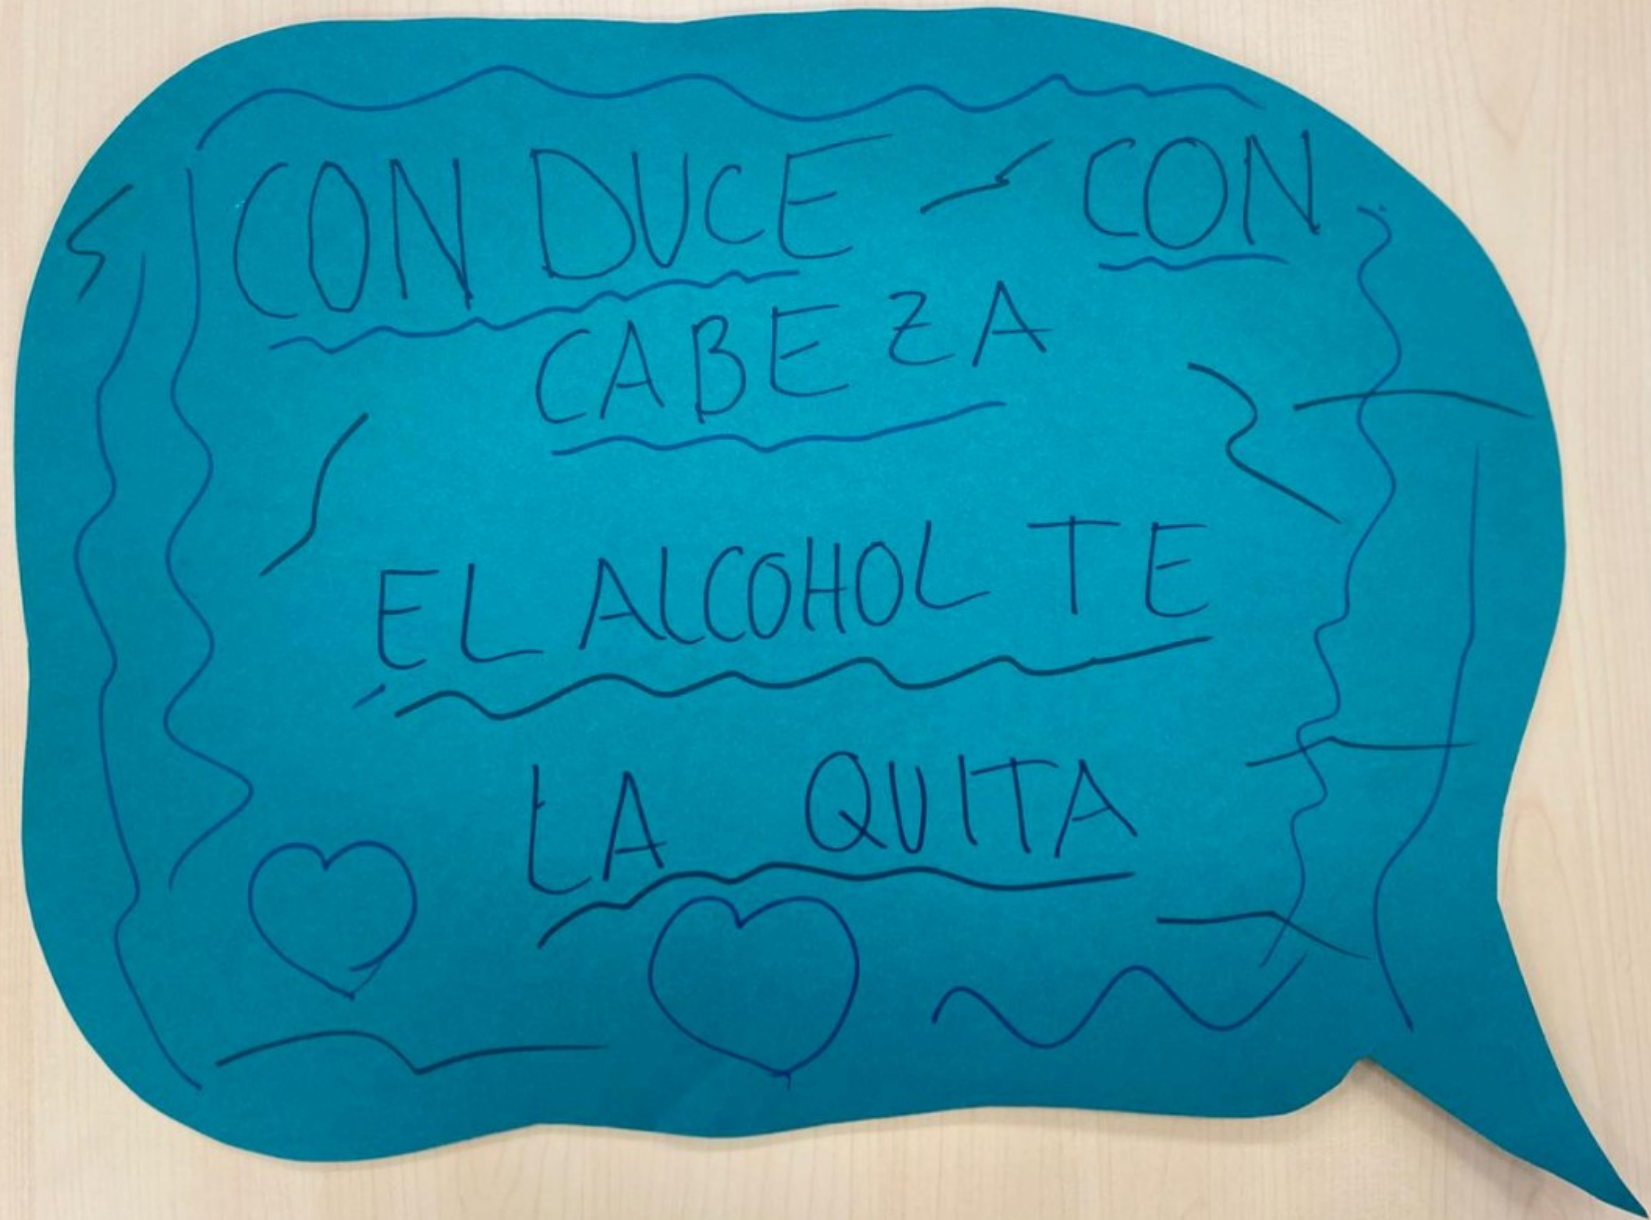 CONDUCE CON
CABEZA
EL ALCOHOL TE
LA QUITA